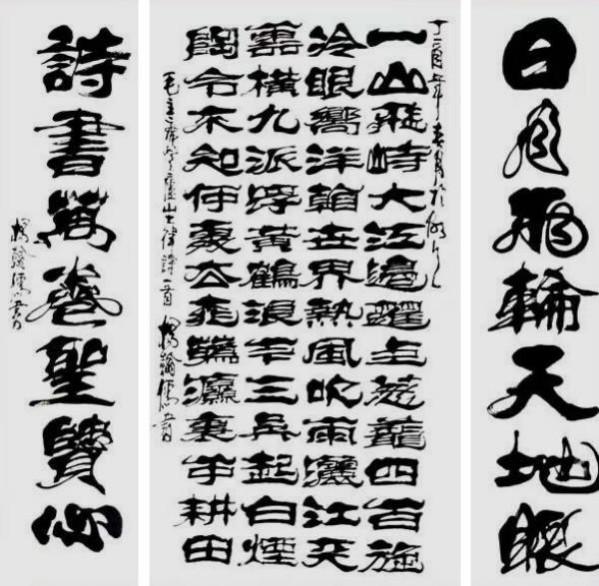 日月兩輪天地眼
丁酉年春月於
一山飛峙大江邊躍上葱龍四百旋
冷眼嚮洋看世界熱風吹雨灑江天
雲橫九派浮黃鶴浪下三吳起白煙
陶令不知何處去桃花源裏可耕田
毛主席登廬山七律詩一首
詩書萬卷聖賢心